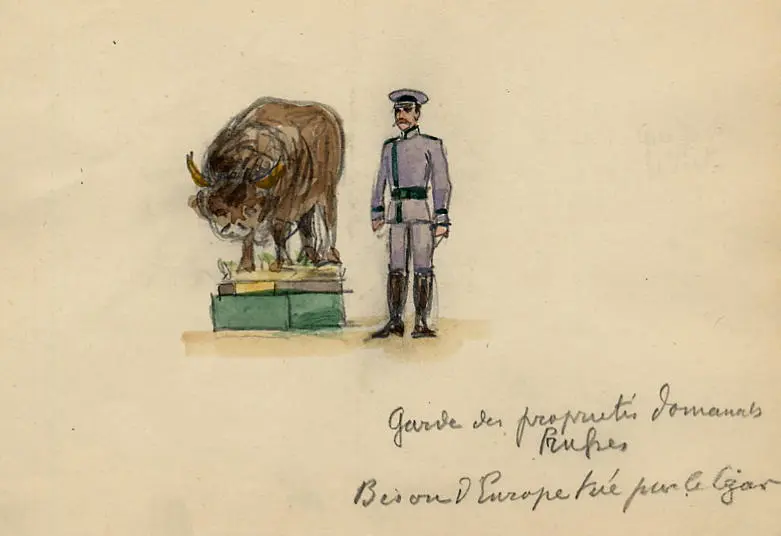 Garde des proprietés Domaniales
Russes
Bison d'Europe tué par le Czar